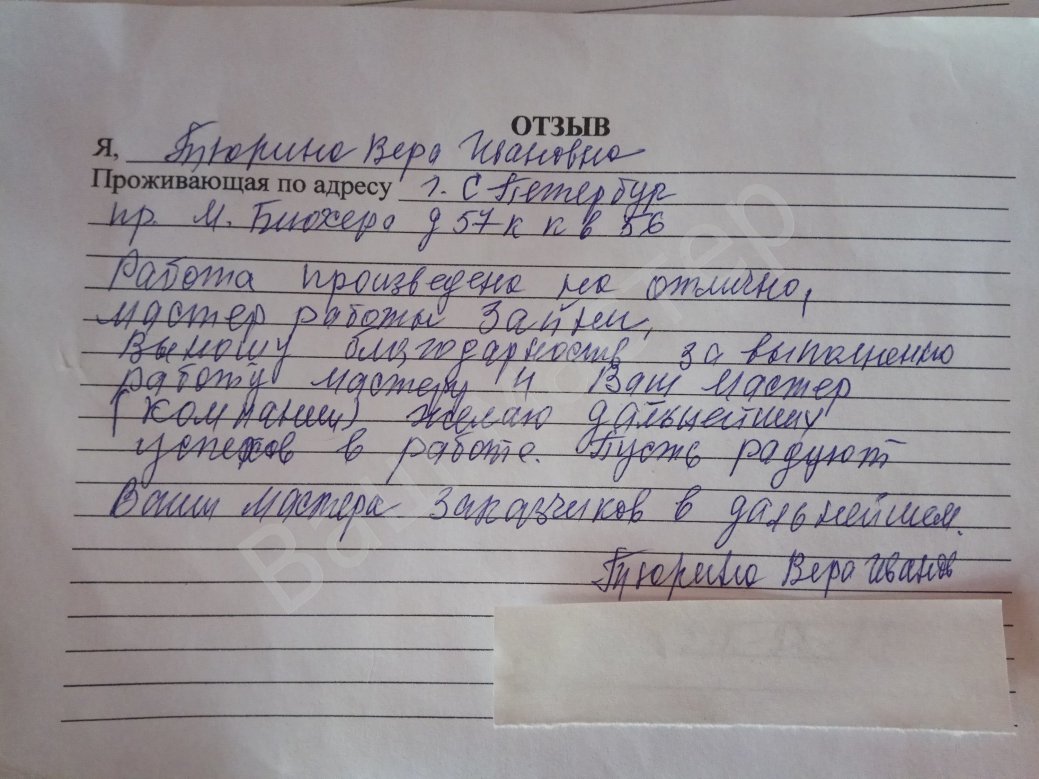 ОТЗЫВ
Я, Тюрина Вера Ивановна
Проживающая по адресу г. С Петербур
пр. М. Блюхера д 57 к к в 56
Работа произведена на отлично,
мастер работы Зайни,
Выношу благодарность за выполненную
работу мастеру и Ваш Мастер
(компании) желаю дальнейших
успехов в работе. Пусть радуют
Ваши мастера заказчиков в дальнейшем.
Тюрина Вера Иванов
Ваш Мастер